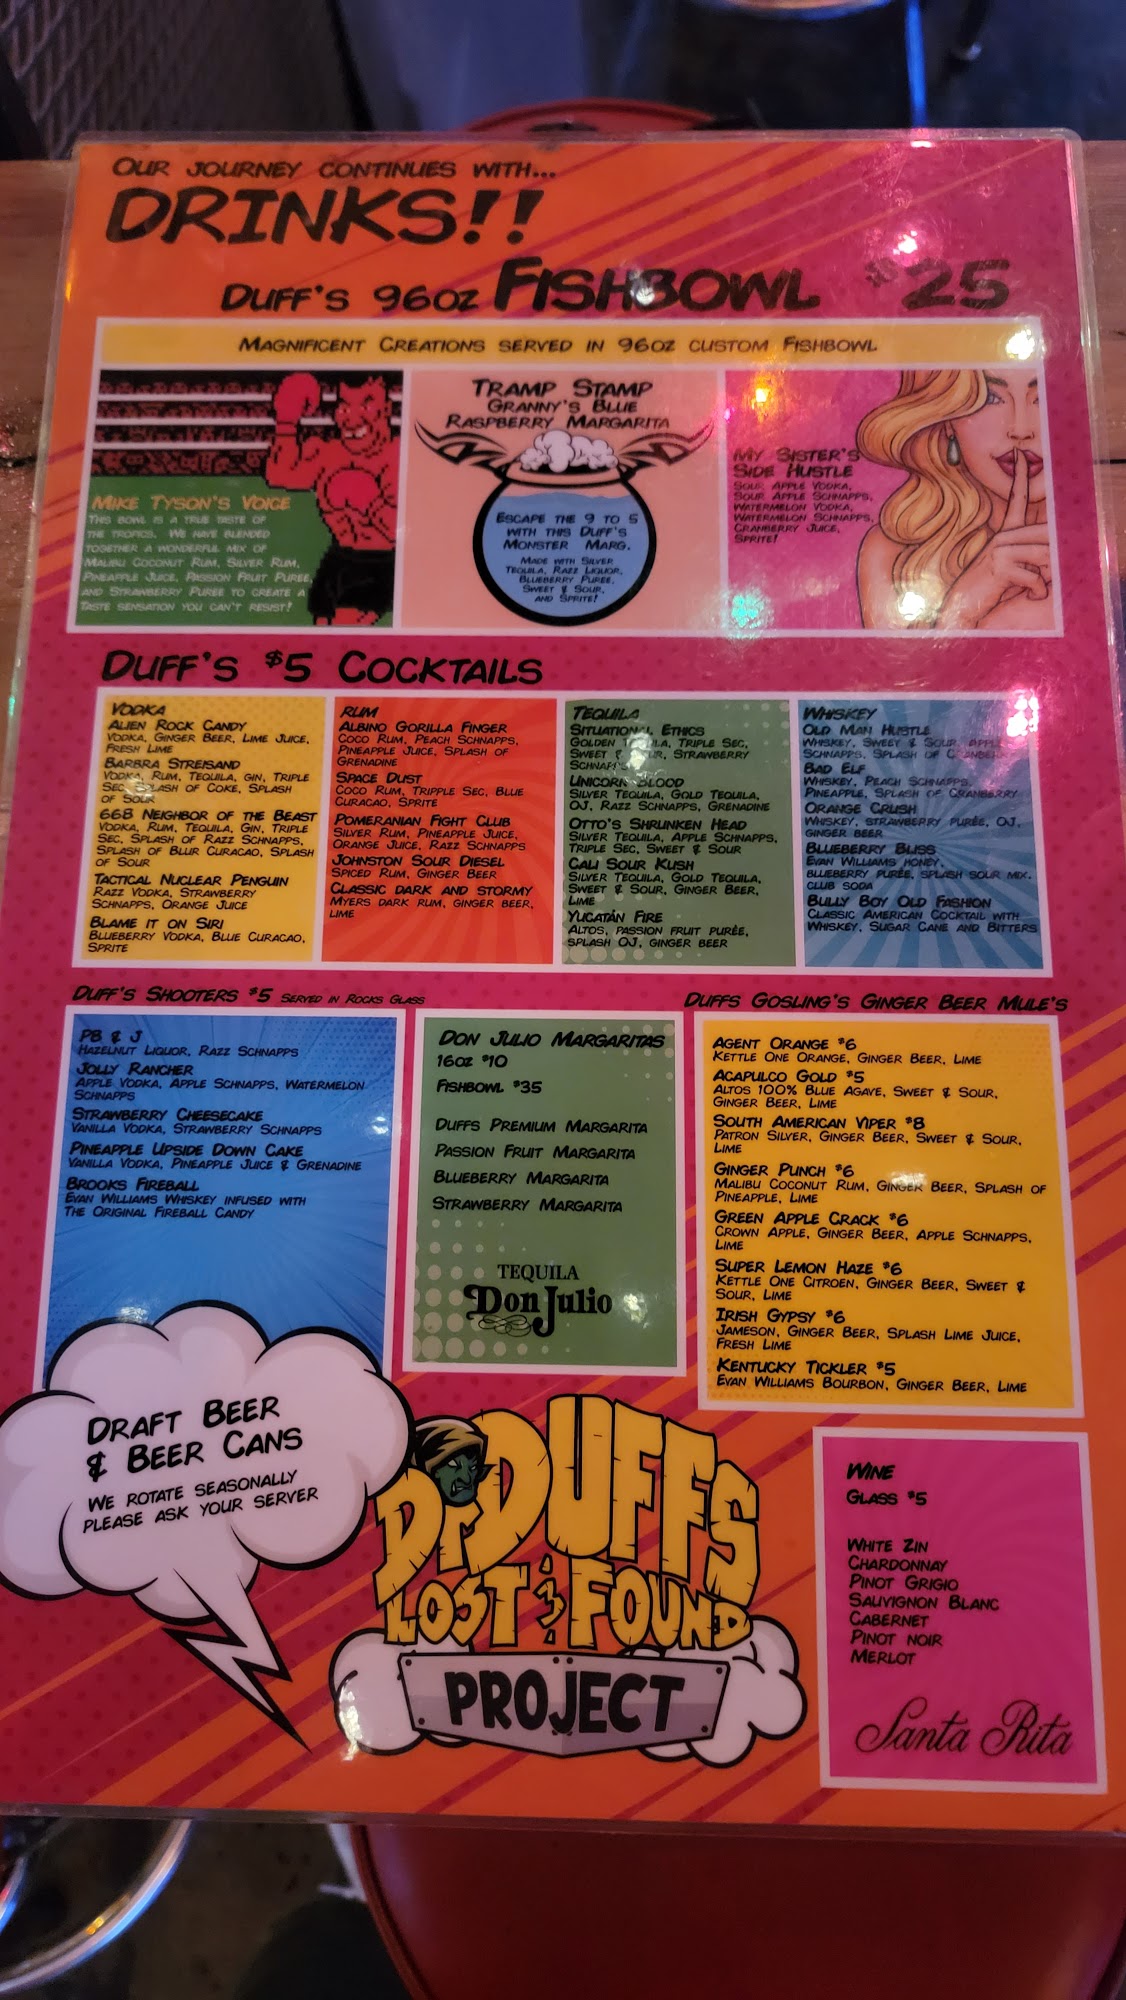 OUR JOURNEY CONTINUES WITH...
DRINKS!!
DUFF'S 96OZ FISHBOWL $25
MAGNIFICENT CREATIONS SERVED IN 96OZ CUSTOM FISHBOWL
MIKE TYSON'S VOICE
THIS BOWL IS A TRUE TASTE OF
THE TROPICS. WE HAVE BLENDED
TOGETHER A WONDERFUL MIX OF
MALIBU COCONUT RUM, SILVER RUM,
PINEAPPLE JUICE, PASSION FRUIT PUREE,
AND STRAWBERRY PUREE TO CREATE A
TASTE SENSATION YOU CAN'T RESIST!
TRAMP STAMP
GRANNY'S BLUE
RASPBERRY MARGARITA
ESCAPE THE 9 TO 5
WITH THIS DUFF'S
MONSTER MARG.
MADE WITH SILVER
TEQUILA, RAZZ LIQUOR,
BLUEBERRY PUREE,
SWEET & SOUR,
AND SPRITE!
MY SISTER'S
SIDE HUSTLE
SOUR APPLE VODKA,
SOUR APPLE SCHNAPPS,
WATERMELON VODKA,
WATERMELON SCHNAPPS,
CRANBERRY JUICE,
SPRITE!
DUFF'S $5 COCKTAILS
VODKA
ALIEN ROCK CANDY
VODKA, GINGER BEER, LIME JUICE,
FRESH LIME
BARBRA STREISAND
VODKA, RUM, TEQUILA, GIN, TRIPLE
SEC, SPLASH OF COKE, SPLASH
OF SOUR
668 NEIGHBOR OF THE BEAST
VODKA, RUM, TEQUILA, GIN, TRIPLE
SEC, SPLASH OF RAZZ SCHNAPPS,
SPLASH OF BLUR CURACAO, SPLASH
OF SOUR
TACTICAL NUCLEAR PENGUIN
RAZZ VODKA, STRAWBERRY
SCHNAPPS, ORANGE JUICE
BLAME IT ON SIRI
BLUEBERRY VODKA, BLUE CURACAO,
SPRITE
RUM
ALBINO GORILLA FINGER
COCO RUM, PEACH SCHNAPPS,
PINEAPPLE JUICE, SPLASH OF
GRENADINE
SPACE DUST
COCO RUM, TRIPPLE SEC, BLUE
CURACAO, SPRITE
POMERANIAN FIGHT CLUB
SILVER RUM, PINEAPPLE JUICE,
ORANGE JUICE, RAZZ SCHNAPPS
JOHNSTON SOUR DIESEL
SPICED RUM, GINGER BEER
CLASSIC DARK AND STORMY
MYERS DARK RUM, GINGER BEER,
LIME
TEQUILA
SITUATIONAL ETHICS
GOLDEN TEQUILA, TRIPLE SEC,
SWEET & SOUR, STRAWBERRY
SCHNAPPS
UNICORN BLOOD
SILVER TEQUILA, GOLD TEQUILA,
OJ, RAZZ SCHNAPPS, GRENADINE
OTTO'S SHRUNKEN HEAD
SILVER TEQUILA, APPLE SCHNAPPS,
TRIPLE SEC, SWEET & SOUR
CALI SOUR KUSH
SILVER TEQUILA, GOLD TEQUILA,
SWEET & SOUR, GINGER BEER,
LIME
YUCATÁN FIRE
ALTOS, PASSION FRUIT PURÉE,
SPLASH OJ, GINGER BEER
WHISKEY
OLD MAN HUSTLE
WHISKEY, SWEET & SOUR, APPLE
SCHNAPPS, SPLASH OF CRANBERRY
BAD ELF
WHISKEY, PEACH SCHNAPPS,
PINEAPPLE, SPLASH OF CRANBERRY
ORANGE CRUSH
WHISKEY, STRAWBERRY PURÉE, OJ,
GINGER BEER
BLUEBERRY BLISS
EVAN WILLIAMS HONEY,
BLUEBERRY PURÉE, SPLASH SOUR MIX,
CLUB SODA
BULLY BOY OLD FASHION
CLASSIC AMERICAN COCKTAIL WITH
WHISKEY, SUGAR CANE AND BITTERS
DUFF'S SHOOTERS $5 SERVED IN ROCKS GLASS
PB & J
HAZELNUT LIQUOR, RAZZ SCHNAPPS
JOLLY RANCHER
APPLE VODKA, APPLE SCHNAPPS, WATERMELON
SCHNAPPS
STRAWBERRY CHEESECAKE
VANILLA VODKA, STRAWBERRY SCHNAPPS
PINEAPPLE UPSIDE DOWN CAKE
VANILLA VODKA, PINEAPPLE JUICE & GRENADINE
BROOKS FIREBALL
EVAN WILLIAMS WHISKEY INFUSED WITH
THE ORIGINAL FIREBALL CANDY
DON JULIO MARGARITAS
16OZ $10
FISHBOWL $35
DUFFS PREMIUM MARGARITA
PASSION FRUIT MARGARITA
BLUEBERRY MARGARITA
STRAWBERRY MARGARITA
TEQUILA
Don Julio
DUFFS GOSLING'S GINGER BEER MULE'S
AGENT ORANGE $6
KETTLE ONE ORANGE, GINGER BEER, LIME
ACAPULCO GOLD $5
ALTOS 100% BLUE AGAVE, SWEET & SOUR,
GINGER BEER, LIME
SOUTH AMERICAN VIPER $8
PATRON SILVER, GINGER BEER, SWEET & SOUR,
LIME
GINGER PUNCH $6
MALIBU COCONUT RUM, GINGER BEER, SPLASH OF
PINEAPPLE, LIME
GREEN APPLE CRACK $6
CROWN APPLE, GINGER BEER, APPLE SCHNAPPS,
LIME
SUPER LEMON HAZE $6
KETTLE ONE CITROEN, GINGER BEER, SWEET &
SOUR, LIME
IRISH GYPSY $6
JAMESON, GINGER BEER, SPLASH LIME JUICE,
FRESH LIME
KENTUCKY TICKLER $5
EVAN WILLIAMS BOURBON, GINGER BEER, LIME
DRAFT BEER
& BEER CANS
WE ROTATE SEASONALLY
PLEASE ASK YOUR SERVER
Dr DUFFS
LOST & FOUND
PROJECT
WINE
GLASS $5
WHITE ZIN
CHARDONNAY
PINOT GRIGIO
SAUVIGNON BLANC
CABERNET
PINOT NOIR
MERLOT
Santa Rita